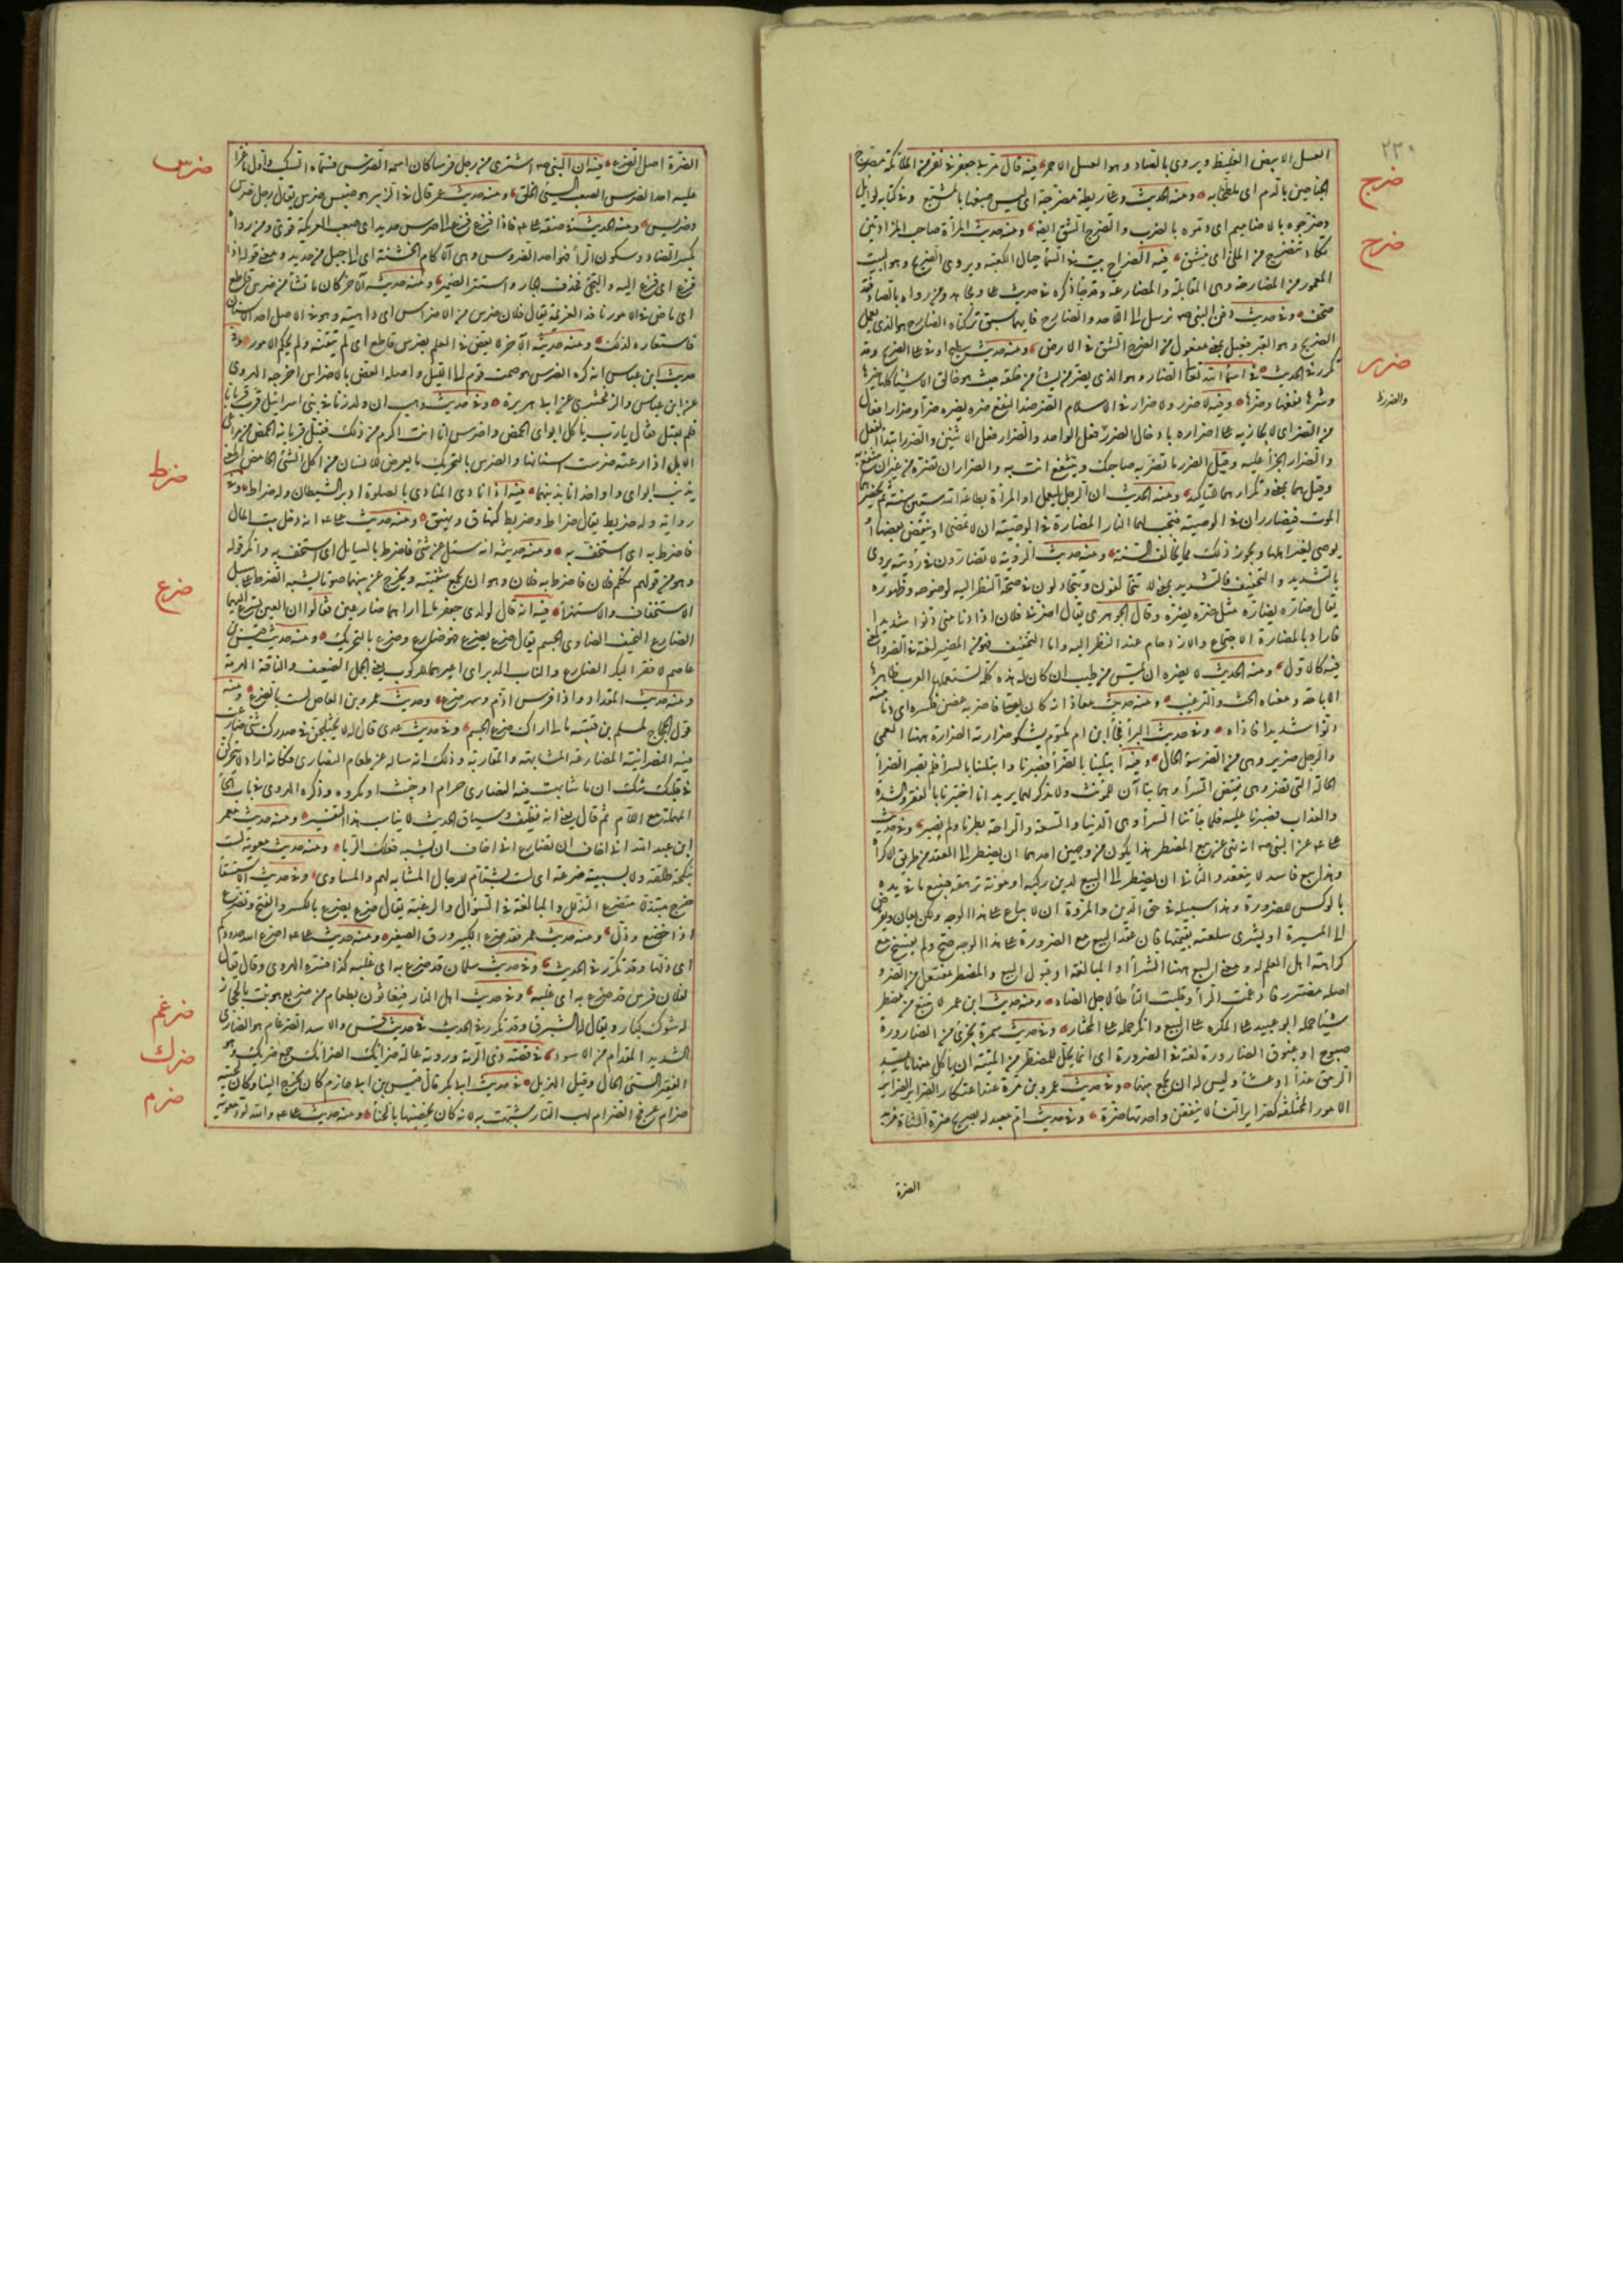 ٢٢٠
العسل الابيض الغليظ ويروى بالصاد وهو العسل الاحمر فيه قال مر بى جعفر فى نفر من الملائكة مضرج
ضرج
الجناحين بالدم اى ملطخا به ومنه الحديث وعلى ريطة مضرجة اى ليس صبغها بالمشبع وفى كتابه لوايل
وضرجوه بالاضاميم اى دموه بالضرب والضرج الشق ايضا ومنه حديث المرأة صاحب المزادتين
تكاد تتضرج من الملئ اى تنشق فيه الضراح بيت فى السماء حيال الكعبة ويروى الضريح وهو البيت
ضرح
المعمور من المضارحة وهى المقابلة والمضارعة وقد جاء ذكره فى حديث على ومجاهد ومن رواه بالصاد فقد
صحف وفى حديث دفن النبى صم نرسل الى اللاحد والضارح فايهما سبق تركناه الضارح هو الذى يعمل
الضريح وهو القبر فعيل بمعنى مفعول من الضرح الشق فى الارض ومنه حديث سطيح اوفى على الضريح وقد
تكرر فى الحديث فى اسماء الله تعالى الضار وهو الذى يضر من يشاء من خلقه حيث هو خالق الاشياء كلها خيرها
ضرر
وشرها نفعها وضرها وفيه لا ضرر ولا ضرار فى الاسلام الضر ضد النفع ضره يضره ضرا وضرارا
من الضر اى لا يجازيه على اضراره بادخال الضرر عليه فعل الواحد والضرار فعل الاثنين والضرر ابتداء الفعل
والضرار الجزاء عليه وقيل الضرر ما تضر به صاحبك وتنتفع انت به والضرار ان تضره من غير ان تنتفع به
وقيل هما بمعنى وتكرارهما للتاكيد ومنه الحديث ان الرجل ليعمل او المرأة بطاعة الله ستين سنة ثم يحضرهما
الموت فيضارران فى الوصية فتجب لهما النار المضارة فى الوصية ان لا تمضى او ينقص بعضها او
يوصى لغير اهلها ونحو ذلك مما يخالف السنة ومنه حديث الرؤية لا تضارون فى رؤيته يروى
بالتشديد والتخفيف فالتشديد بمعنى لا تتخالفون وتتجادلون فى صحة النظر اليه لوضوحه وظهوره
يقال ضاره يضاره مثل ضره يضره وقال الجوهرى يقال اضر فى فلان اذا دنا منى دنوا شديدا
فاراد بالمضارة الاجتماع والازدحام عند النظر اليه واما التخفيف فهو من الضير لغة فى الضر والمعنى
فيه كالاول ومنه الحديث لا يضره ان يمس من طيب ان كان له هذه كلمة تستعملها العرب ظاهرها
الاباحة ومعناه الحث والترغيب ومنه حديث معاذ انه كان يصلى فاضر به غصن فكسره اى دنا منه
دنوا شديدا فاذاه وفى حديث البراء فجاء ابن ام مكتوم يشكو ضرارته الضرارة ههنا العمى
والرجل ضرير وهى من الضر سوء الحال وفيه ابتلينا بالضراء فصبرنا وابتلينا بالسراء فلم نصبر الضراء
الحالة التى تضر وهى نقيض السراء وهما بناآن للمؤنث ولا مذكر لهما يريد انا اختبرنا بالفقر والشدة
والعذاب فصبرنا عليه فلما جاءتنا السراء وهى الدنيا والسعة والراحة بطرنا ولم نصبر وفى حديث
على عن النبى صم انه نهى عن بيع المضطر هذا يكون من وجهين احدهما ان يضطر الى العقد من طريق الاكراه
وهذا بيع فاسد لا ينعقد والثانى ان يضطر الى البيع لدين ركبه او مؤنة ترهقه فيبيع ما فى يده
بالوكس للضرورة وهذا سبيله فى حق الدين والمروة ان لا يبايع على هذا الوجه ولكن يعان ويقرض
الى الميسرة او يشترى سلعته بقيمتها فان عقد البيع مع الضرورة على هذا الوجه صح ولم يفسخ مع
كراهة اهل العلم له ومعنى البيع ههنا الشراء او المبايعة او قبول البيع والمضطر مفتعل من الضر
اصله مضترر فادغمت الراء وقلبت التاء طاء لاجل الضاد ومنه حديث ابن عمر لا تبتع من مضطر
شيئا حمله ابو عبيد على المكره على البيع وانكر حمله على المحتاج وفى حديث سمرة يجزئ من الضارورة
صبوح او غبوق الضارورة لغة فى الضرورة اى انما يحل للمضطر من الميتة ان يأكل منها ما يسد
الرمق غداء او عشاء وليس له ان يجمع بينهما وفى حديث عمرو بن مرة عند اعتكار الضراير الضراير
الامور المختلفة كضراير النساء لا يتفقن واحدتها ضرة وفى حديث ام معبد له بصريح ضرة الشاة مزبد
الضرة
الضرة اصل الضرع فيه ان النبى صم اشترى من رجل فرسا كان اسمه الضرس فسماه السكب واول ما غزا
ضرس
عليه احدا الضرس الصعب السيئ الخلق ومنه حديث عمر قال فى الزبير هو ضبس ضرس يقال رجل ضرس
وضريس ومنه الحديث فى صفة على فاذا فزع فزع الى ضرس حديد اى صعب العريكة قوى ومن رواه
بكسر الضاد وسكون الراء فهو احد الضروس وهى الآكام الخشنة اى الى جبل من حديد ومعنى قوله اذا
فزع اى فزع اليه والتجئ فحذف الجار واستتر الضمير ومنه حديثه الآخر كان ما تشاء من ضرس قاطع
اى ماض فى الامور نافذ العزيمة يقال فلان ضرس من الاضراس اى داهية وهو فى الاصل احد الاسنان
فاستعاره لذلك ومنه حديثه الآخر لا يعض فى العلم بضرس قاطع اى لم يتقنه ولم يحكم الامور وفى
حديث ابن عباس انه كره الضرس هو صمت يوم الى الليل واصله العض بالاضراس اخرجه الهروى
عن ابن عباس والزمخشرى عن ابى هريرة وفى حديث وهب ان ولد زنا فى بنى اسرائيل قرب قربانا
فلم يقبل فقال يا رب يأكل ابواى الحمض واضرس انا انت اكرم من ذلك فقبل قربانه الحمض من مراعى
الابل اذا رعته ضرست اسنانها والضرس بالتحريك ما يعرض للانسان من اكل الشئ الحامض المعنى
يذنب ابواى واواخذ انا بذنبهما فيه اذا نادى المنادى بالصلوة ادبر الشيطان وله ضراط وفى
ضرط
رواية وله ضريط يقال ضراط وضريط كنهاق ونهيق ومنه حديث على انه دخل بيت المال
فاضرط به اى استخف به ومنه حديثه انه سئل عن شئ فاضرط بالسايل اى استخف به وانكر قوله
وهو من قولهم تكلم فلان فاضرط به فلان وهو ان يجمع شفتيه ويخرج من بينهما صوتا يشبه الضرطة على سبيل
الاستخفاف والاستهزاء فيه انه قال لولدى جعفر مالى اراهما ضارعين فقالوا ان العين تسرع اليهما
ضرع
الضارع النحيف الضاوى الجسم يقال ضرع يضرع فهو ضارع وضرع بالتحريك ومنه حديث قيس بن
عاصم لا فقر البكر الضارع والناب المدبر اى اعيرهما للركوب يعنى الجمل الضعيف والناقة الهرمة
ومنه حديث المقداد واذا فرس ادم ومهر ضرع وحديث عمرو بن العاص لست بالضرع ومنه
قول الحجاج لمسلم بن قتيبة مالى اراك ضرع الجسم وفى حديث عدى قال له لا يختلجن فى صدرك شئ ضارعت
فيه النصرانية المضارعة المشابهة والمقاربة وذلك انه ساله عن طعام النصارى فكأنه اراد لا يتحركن
فى قلبك شك ان ما شابهت فيه النصارى حرام او خبيث او مكروه وذكره الهروى فى باب الحاء
المهملة مع اللام ثم قال يعنى انه نظيف وسياق الحديث لا يناسب هذا التفسير ومنه حديث معمر
ابن عبد الله انى اخاف ان تضارع اى اخاف ان يشبه فعلك الربا ومنه حديث معوية لست
بنكحة طلقة ولا بسببة ضرعة اى لست بشتام للرجال المشابه لهم والمساوى وفى حديث الاستسقاء
خرج متبذلا متضرعا التضرع التذلل والمبالغة فى السؤال والرغبة يقال ضرع يضرع بالكسر والفتح وتضرع
اذا خضع وذل ومنه حديث عمر فقد ضرع الكبير ورق الصغير ومنه حديث على اضرع الله خدودكم
اى اذلها وقد تكرر فى الحديث وفى حديث سلمان قد ضرع به اى غلبه كذا فسره الهروى وقال يقال
لفلان فرس قد ضرع به اى غلبه وفى حديث اهل النار فيغاثون بطعام من ضريع هو نبت بالحجاز
له شوك كبار ويقال له الشبرق وقد تكرر فى الحديث فى حديث قس والاسد الضرغام هو الضارى
ضرغم
الشديد المقدام من الاسود فى قصة ذى الرمة ورؤبة عالة ضرائك الضرائك جمع ضريك وهو
ضرك
الفقير السيئ الحال وقيل الهزيل فى حديث ابى بكر قال قيس بن ابى حازم كان يخرج الينا وكأن لحيته
ضرم
ضرام عرفج الضرام لهب النار شبهت به لانه كان يخضبها بالحناء ومنه حديث على والله لود معوية